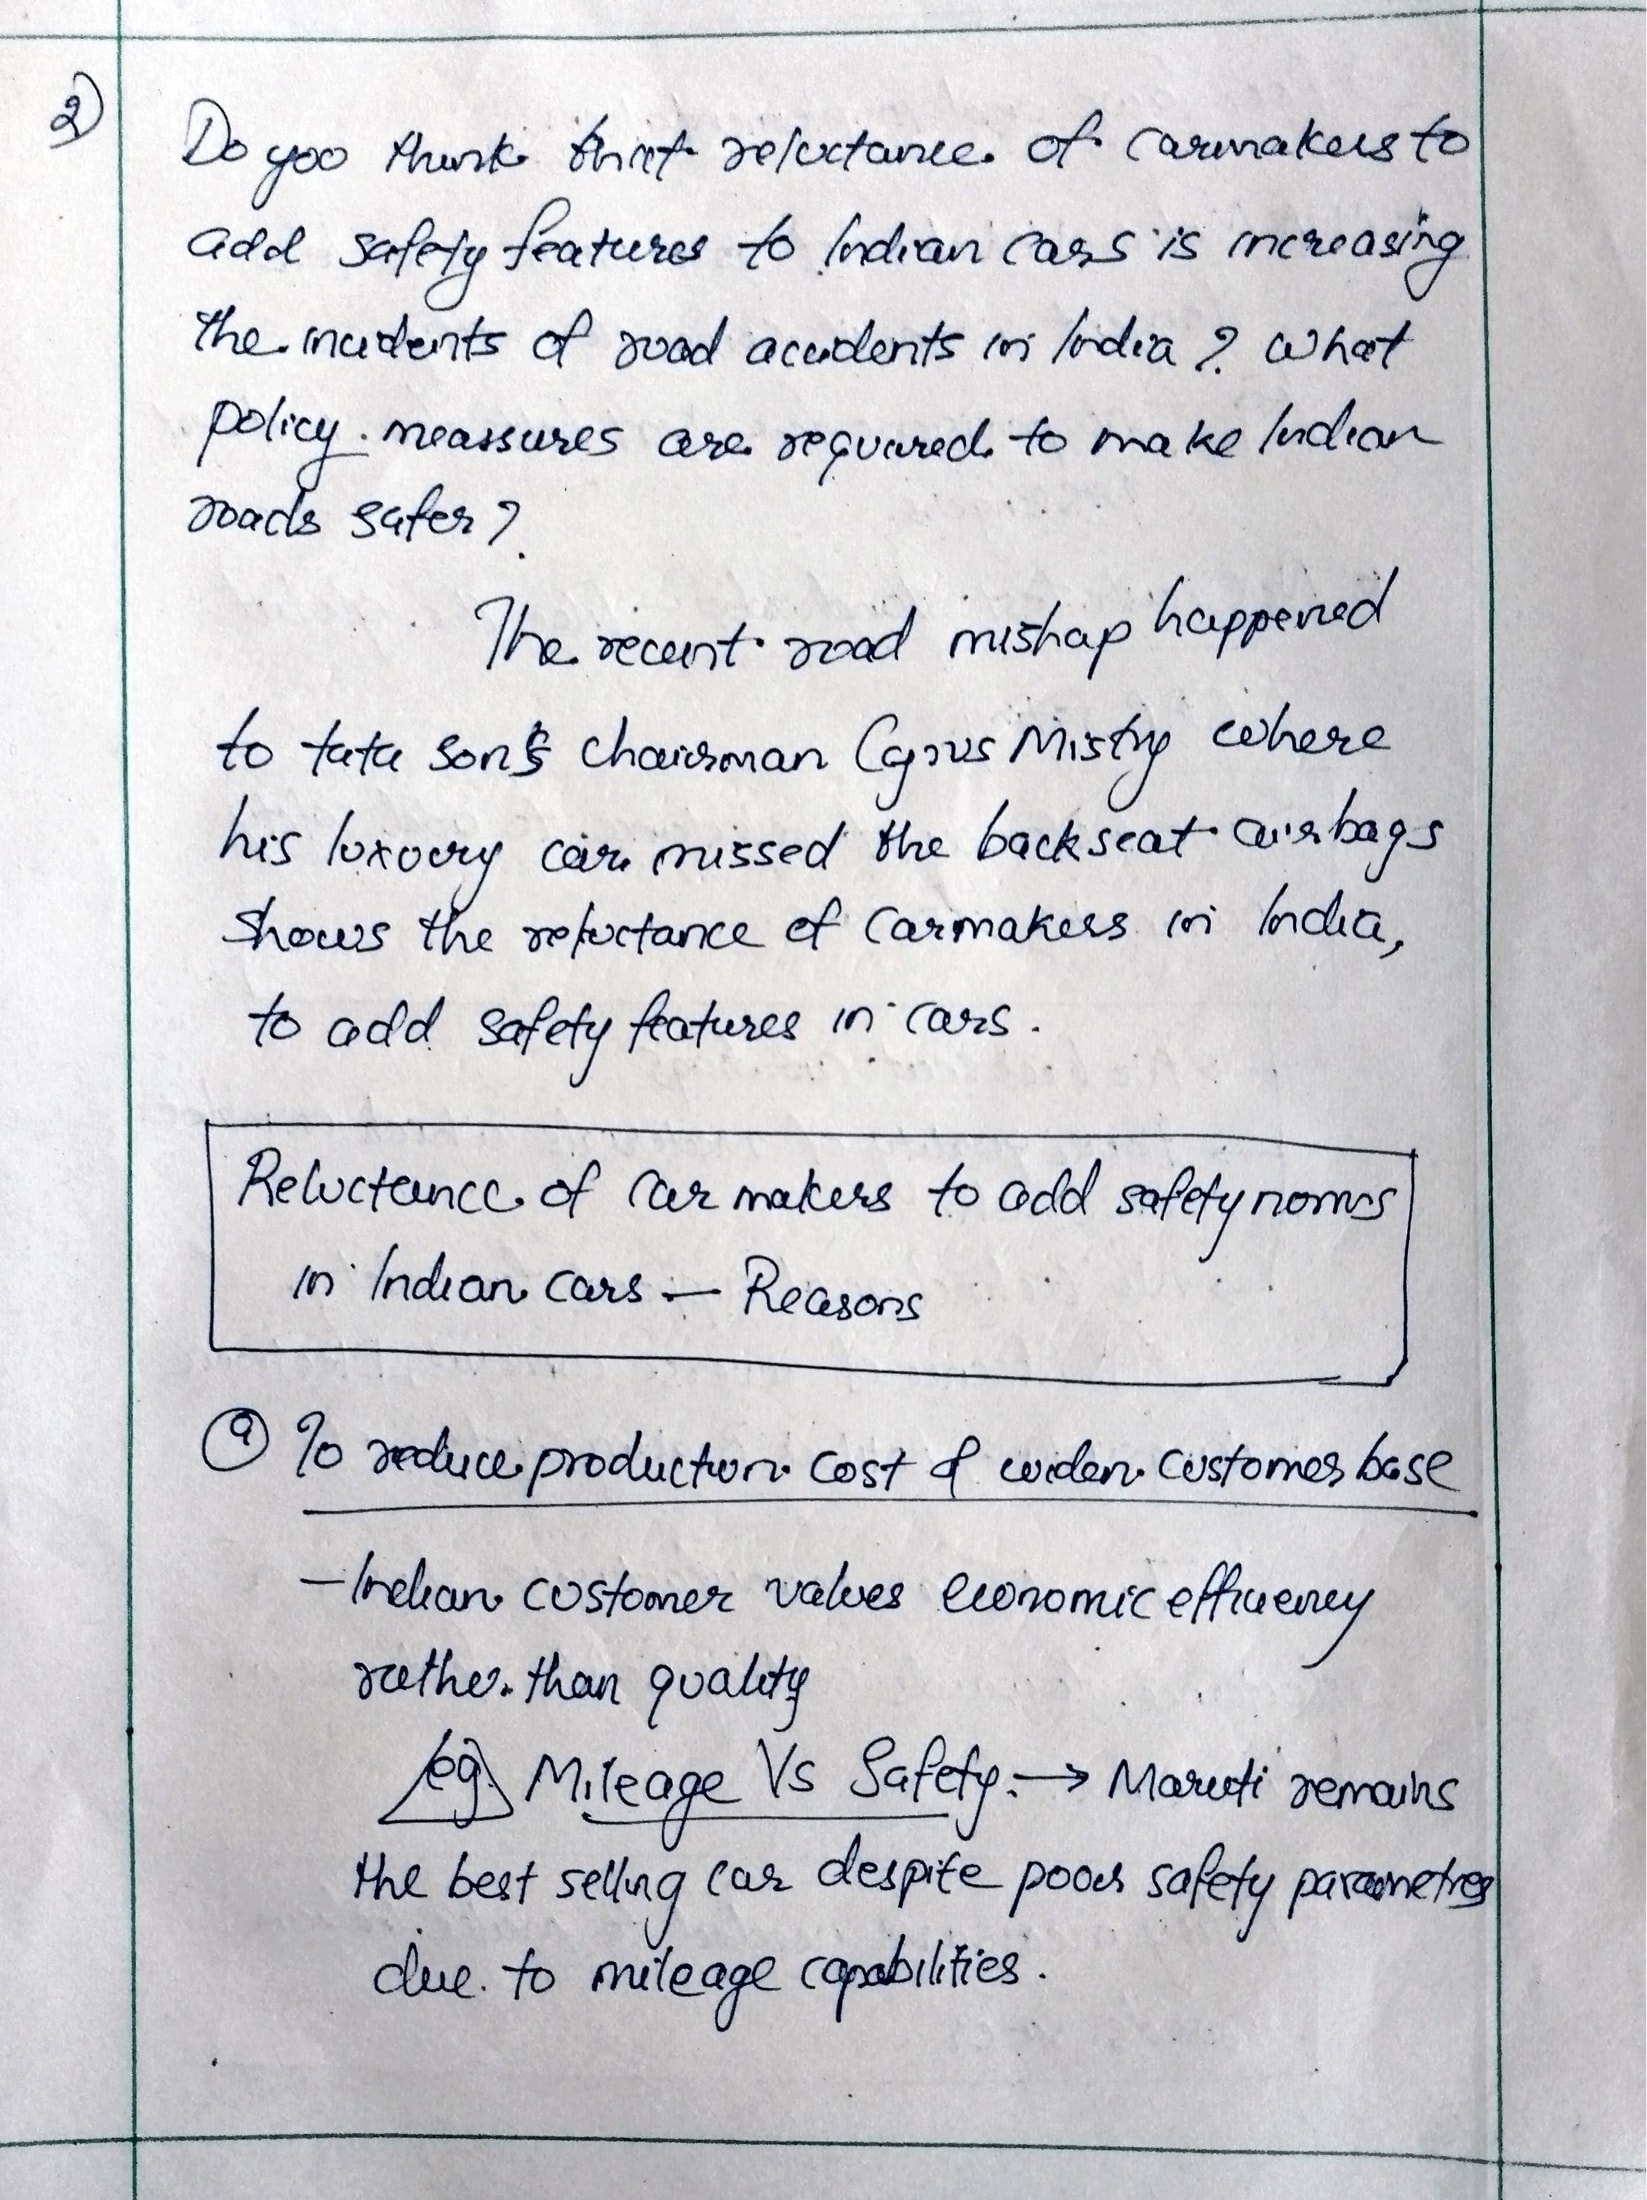 2)
Do you think that reluctance of carmakers to
add safety features to Indian cars is increasing
the incidents of road accidents in India? What
policy measures are required to make Indian
roads safer?
The recent road mishap happened
to tata son's chairman Cyrus Mistry where
his luxuery car missed the backseat airbags
shows the reluctance of carmakers in India,
to add safety features in cars.
Reluctance of car makers to add safety norms
in Indian cars - Reasons
a) To reduce production cost & widen customer base
- Indian customer values economic efficiency
rather than quality
eg. Mileage Vs Safety. → Maruti remains
the best selling car despite poor safety parametres
due to mileage capabilities.